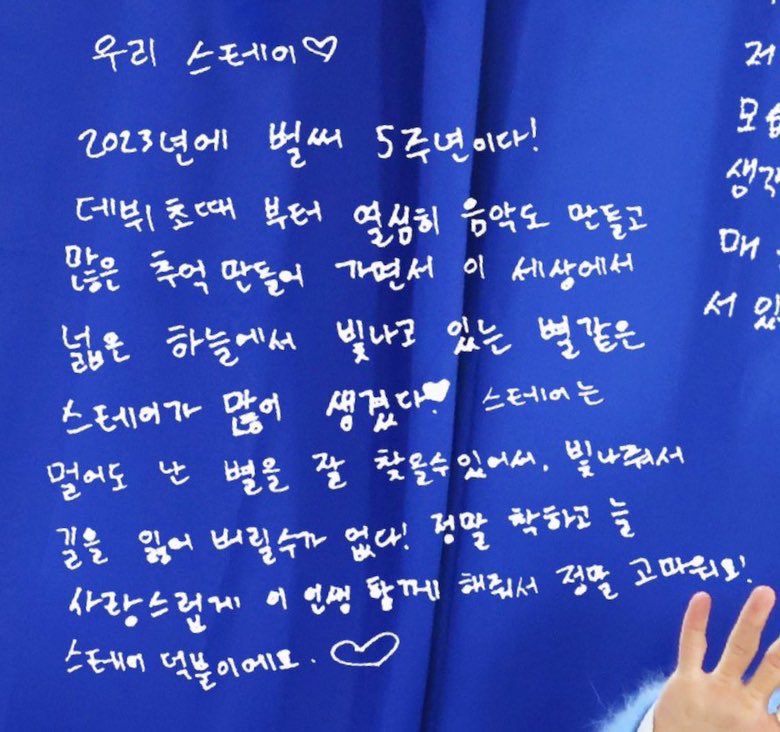 우리 스테이♡
2023년에 벌써 5주년이다!
데뷔초때 부터 열심히 음악도 만들고
많은 추억 만들어 가면서 이 세상에서
넓은 하늘에서 빛나고 있는 별같은
스테이가 많이 생겼다♥ 스테이는
멀어도 난 별을 잘 찾을수있어서, 빛나줘서
길을 잃어 버릴수가 없다! 정말 착하고 늘
사랑스럽게 이 인생 함께 해줘서 정말 고마워요!
스테이 덕분이에요. ♡
저
모습
생각
매
서 있